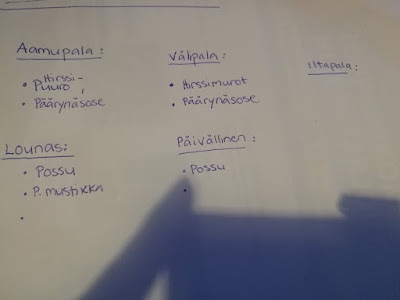 Aamupala:
• Hirssi-
Puuro,
• Päärynäsose
Välipala:
• Hirssimurot
• Päärynäsose
Iltapala:
Lounas:
• Possu
• P. mustikka
•
Päivällinen:
• Possu
•